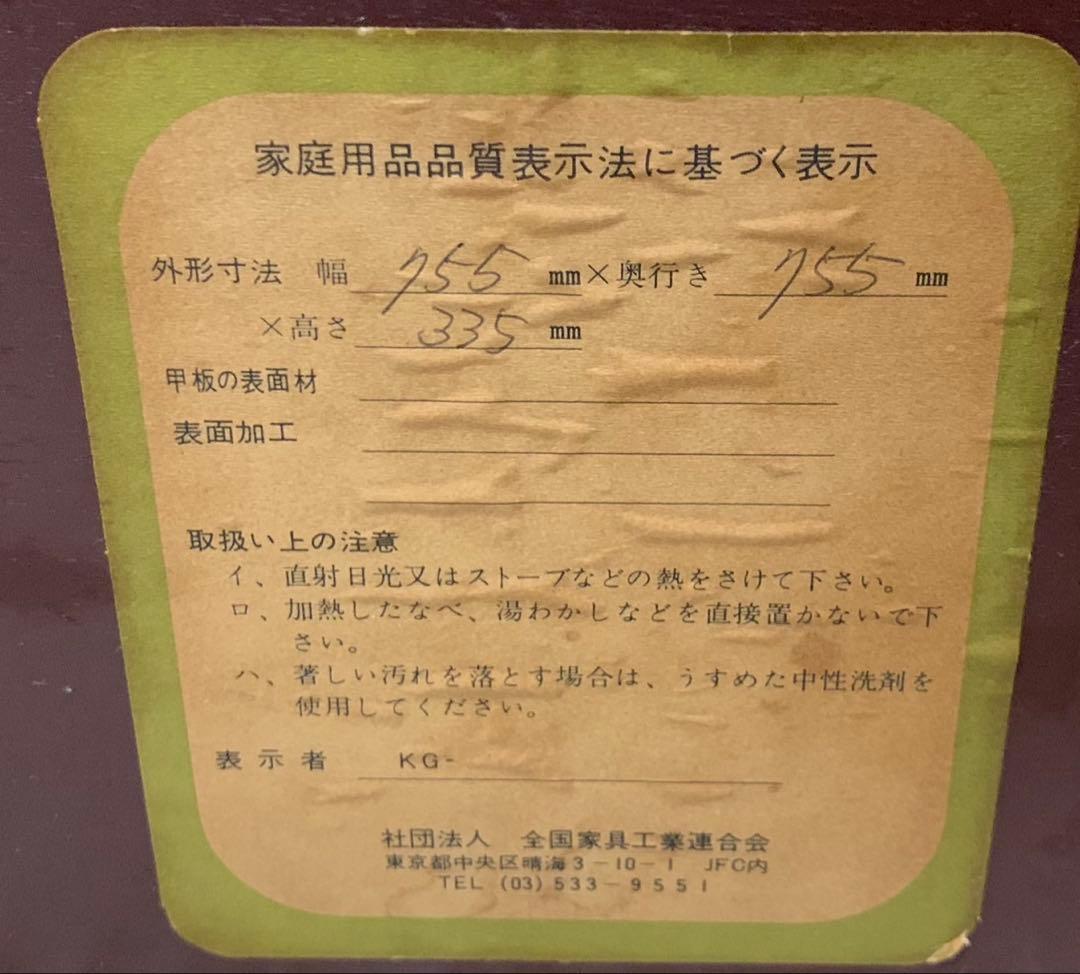 家庭用品品質表示法に基づく表示
外形寸法 幅 755 mm×奥行き 755 mm
×高さ 335 mm
甲板の表面材
表面加工
取扱い上の注意
イ、直射日光又はストーブなどの熱をさけて下さい。
ロ、加熱したなべ、湯わかしなどを直接置かないで下
さい。
ハ、著しい汚れを落とす場合は、うすめた中性洗剤を
使用してください。
表示者 KG-
社団法人 全国家具工業連合会
東京都中央区晴海3-10-1 JFC内
TEL (03) 533-9551